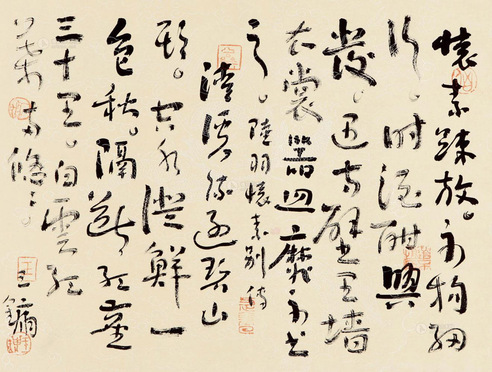 懷素疎放。不拘細
行。時酒酣興
發。遇寺壁里墻
衣裳器皿靡不書
之。陸羽懷素別傳
清溪流過碧山
頭。空水澄鮮一
色秋。隔斷紅塵
三十里。白雲紅
葉兩悠々。
王鏞